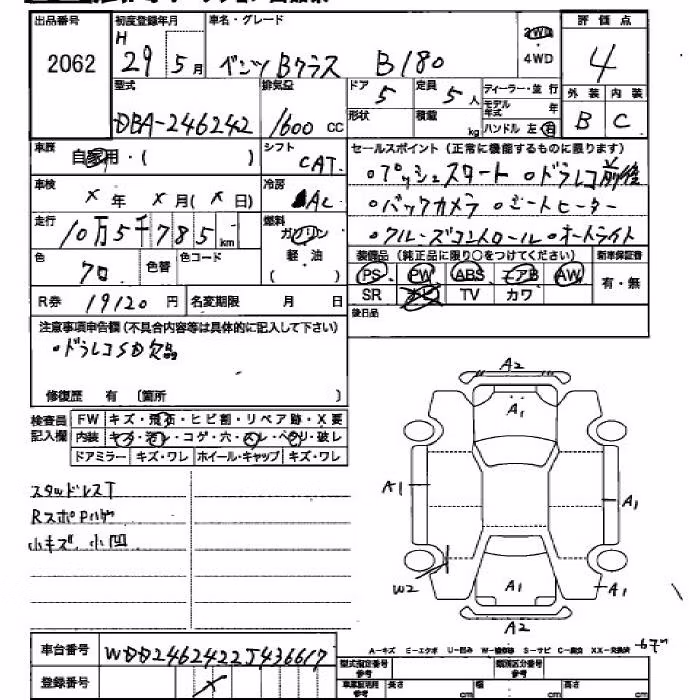 出品番号 初度登録年月 車名・グレード 評価点
2062 H 29年5月 ベンツ Bクラス B180 2WD ・ 4WD 4
型式 排気量 ドア 5 定員 5人 ディーラー・並行 外装 内装
DBA-246242 1600 cc 形状 積載 kg モデル年式 年 ハンドル 左 右 B C
車歴 自家用・( ) シフト CAT セールスポイント (正常に機能するものに限ります)
・プッシュスタート ・ドラレコ前後
車検 X年 X月(X日) 冷房 AC
・バックカメラ ・シートヒーター
走行 10万5千785km 燃料 ガソリン 軽・油 ( )
・クルーズコントロール ・オートライト
色 クロ 色替 色コード 装備品 (純正品に限り○をつけてください) 新車保証書
PS PW ABS エアB AW 有・無
R券 19120円 名変期限 月 日 SR ナビ TV カワ
注意事項申告欄 (不具合内容等は具体的に記入して下さい) 後日品
・ドラレコSD欠品
修復歴 有 〔箇所 〕
検査員 FW キズ・飛石・ヒビ割・リペア跡・X要
記入欄 内装 キズ・汚レ・コゲ・穴・スレ・ベタリ・破レ
ドアミラー キズ・ワレ ホイール・キャップ キズ・ワレ
スタッドレスT
小キズ、小凹
A2
A1
A1 A1
W2 A1 A1
A2
車台番号 WDD2462422J436617 A-キズ E-エクボ U-凹み W-補修跡 S-サビ C-腐食 XX-交換済
登録番号 X 型式指定番号 参考 類別区分番号 参考
車庫証明用 参考 長さ cm 幅 cm 高さ cm